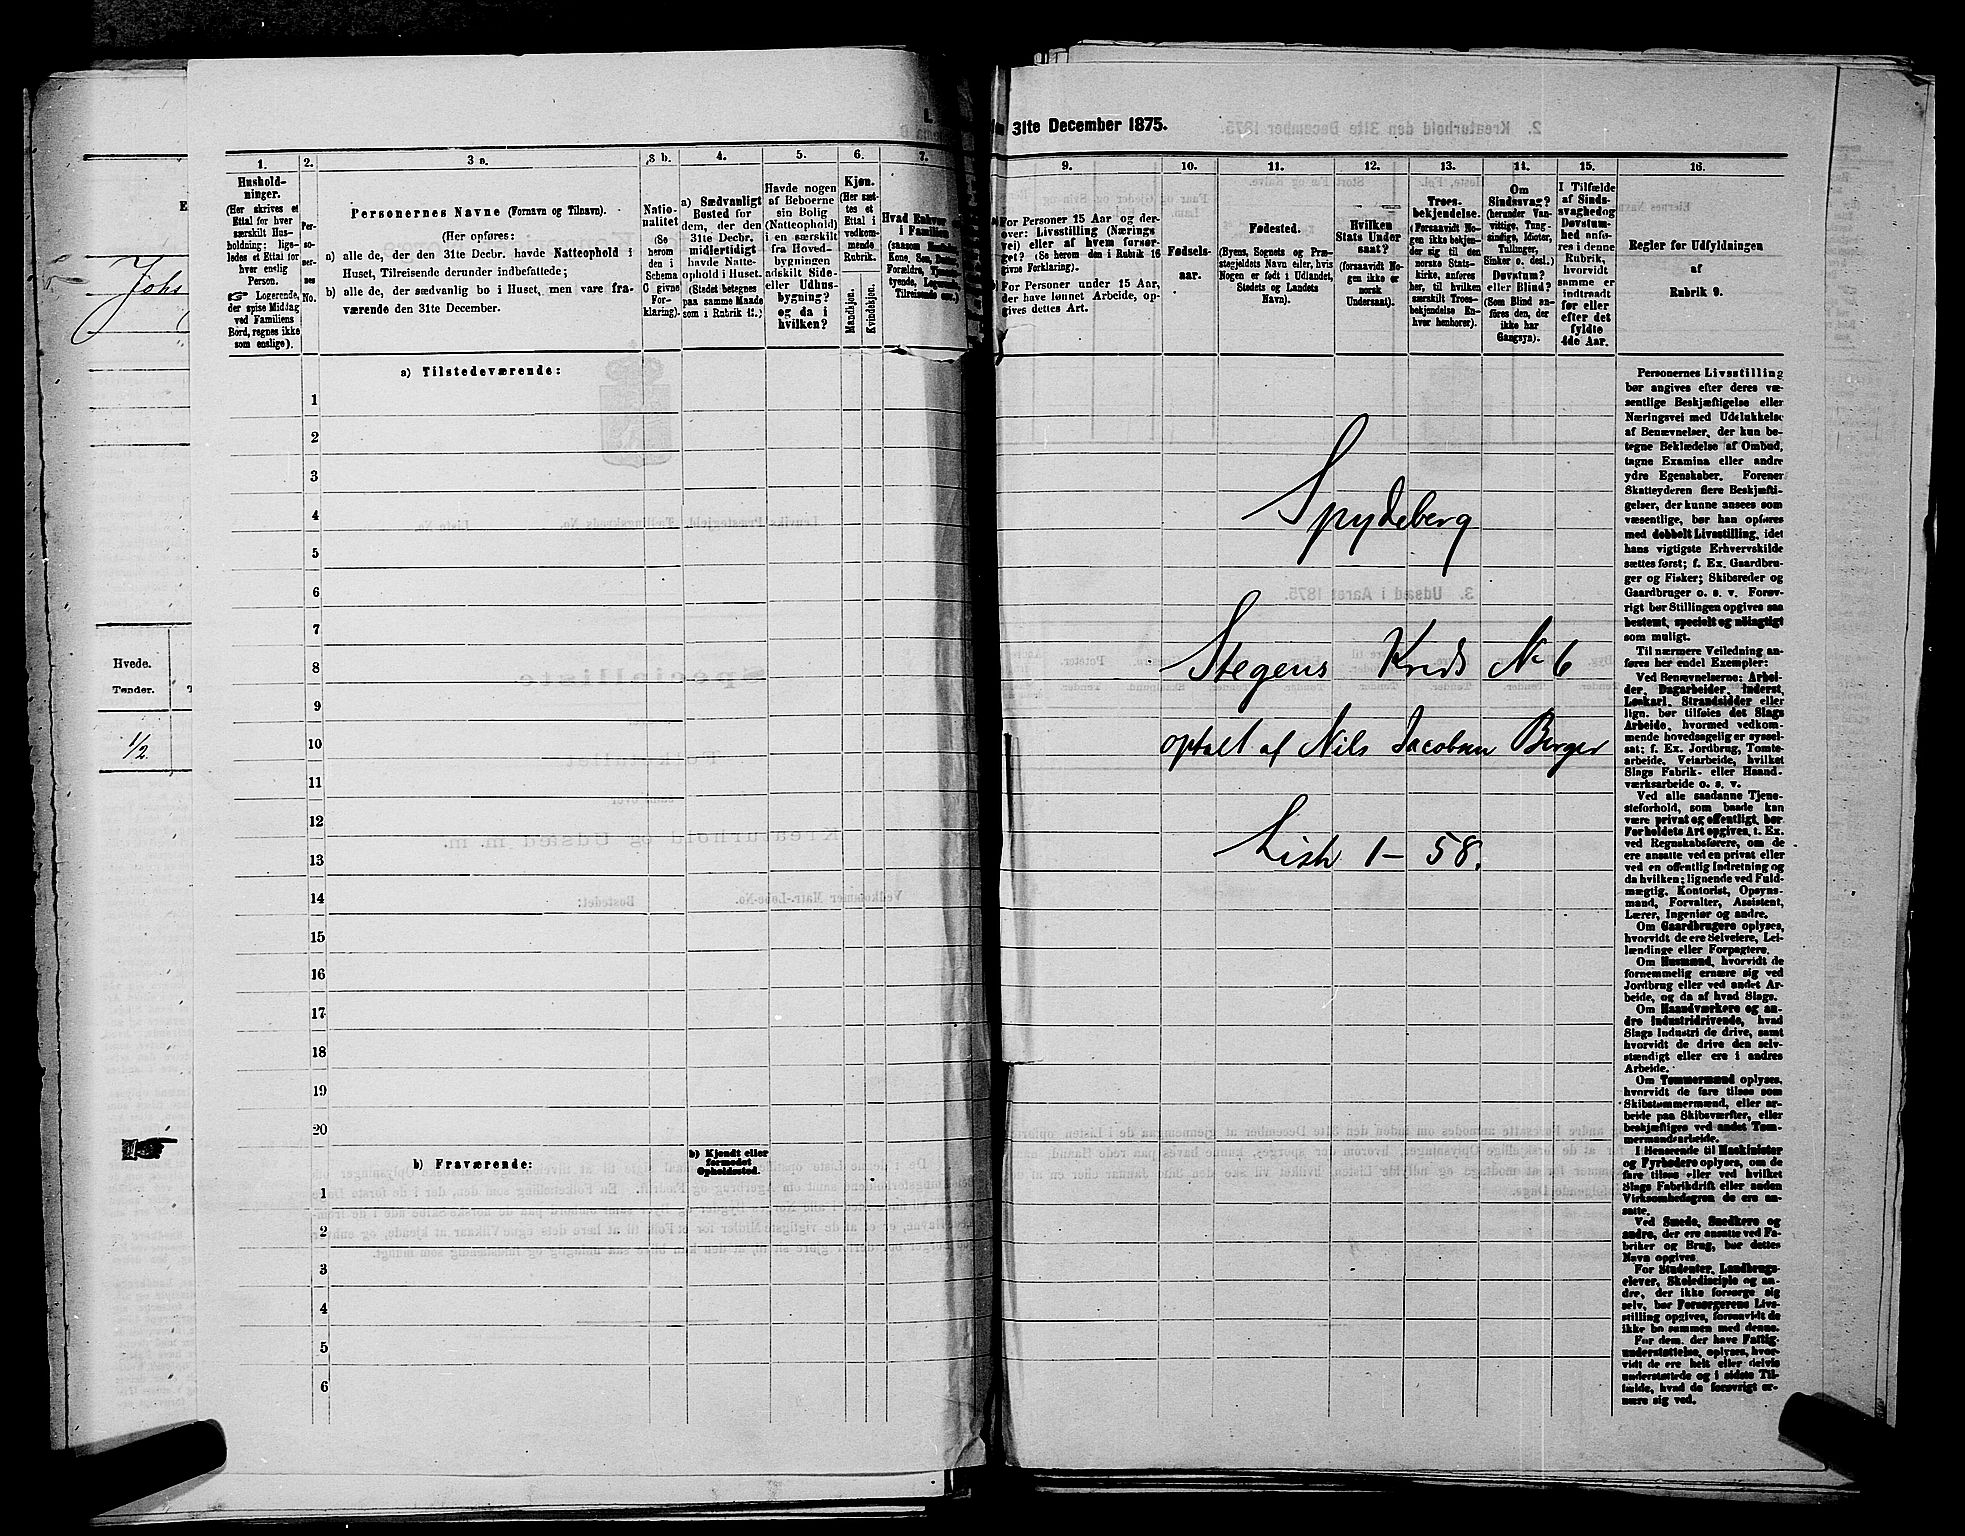 Johs
Hvede.
Tønder.
1/2
31te December 1875.
1.
Husholdninger.
(Her skrives et
Ettal for hver
særskilt Husholdning;
ligeledes et Ettal for
hver enslig
Person.
Logerende,
der spise Middag
ved Familiens
Bord, regnes ikke
som enslige).
2.
Personernes
No.
3 a.
Personernes Navne (Fornavn og Tilnavn).
(Her opføres:
a) alle de, der den 31te Decbr. havde Natteophold i
Huset, Tilreisende derunder indbefattede;
b) alle de, der sædvanlig bo i Huset, men vare fraværende
den 31te December.
3 b.
Nationalitet
(Se
herom
den i
Schema
C givne
Forklaring).
4.
a) Sædvanligt
Bosted for
dem, der den
31te Decbr.
midlertidigt
havde Natteophold
i Huset.
(Stedet betegnes
paa samme Maade
som i Rubrik 11.)
5.
Havde nogen
af Beboerne
sin Bolig
(Natteophold)
i en særskilt
fra Hovedbygningen
adskilt Side-
eller Udhusbygning?
og da i
hvilken?
6.
Kjøn.
(Her sættes
et
Ettal i
vedkommende
Rubrik.
Mandkjøn.
Kvindekjøn.
7.
Hvad Enhver
i Familien
a) Tilstedeværende:
1
2
3
4
5
6
7
8
9
10
11
12
13
14
15
16
17
18
19
20
b) Fraværende:
b) Kjendt eller
formodet
Opholdssted.
1
2
3
4
5
6
9.
For Personer 15 Aar og derover:
Livsstilling (Næringsvei)
eller af hvem forsørget?
(Se herom den i Rubrik 16
givne Forklaring).
For Personer under 15 Aar,
der have lønnet Arbeide, opgives
dettes Art.
10.
Fødselsaar.
11.
Fødested.
(Byens, Sognets og Præstegjeldets
Navn eller, hvis
Nogen er født i Udlandet,
Stedets og Landets
Navn).
12.
Hvilken
Stats Undersaat?
(forsaavidt Nogen
ikke er
norsk
Undersaat).
13.
Troesbekjendelse.
(Forsaavidt Nogen
ikke bekjender
sig til den
norske Statskirke,
anføres
her, til hvilken
særskilt Troesbekjendelse
Enhver
henhører).
14.
Om
Sindssvag?
(herunder Vanvittige,
Tungsindige,
Idioter,
Tullinger,
Sinker o. desl.)
Døvstum?
eller Blind?
(Som Blind anføres
den, der
ikke har
Gangsyn).
15.
I Tilfælde
af Sindssvaghed
og
Døvstumhed
anføres
i denne
Rubrik,
hvorvidt
samme er
indtraadt
før eller
efter det
fyldte
4de Aar.
16.
Regler for Udfyldningen
af
Rubrik 9.
Spydeberg
Stegens Kreds No 6
optalt af Nils Jacobsen Berger
Liste 1 – 58.
Personernes Livsstilling
bør angives efter deres væsentlige
Beskjæftigelse eller
Næringsvei med Udelukkelse
af Benævnelser, der kun betegne
Beklædelse af Ombud,
tagne Examina eller andre
ydre Egenskaber. Forener
Skatteyderen flere Beskjæftigelser,
der kunne ansees som
væsentlige, bør han opføres
med dobbelt Livsstilling, idet
hans vigtigste Erhvervskilde
sættes først; f. Ex. Gaardbruger
og Fisker; Skibsreder og
Gaardbruger o. s. v. Forøvrigt
bør Stillingen opgives saa
bestemt, specielt og nøiagtigt
som muligt.
Til nærmere Veiledning anføres
her endel Exempler:
Ved Benævnelserne: Arbeider,
Dagarbeider, Inderst,
Løskarl, Strandsidder eller
lign. bør tilføies det Slags
Arbeide, hvormed vedkommende
hovedsagelig er sysselsat;
f. Ex. Jordbrug, Tomtearbeide,
Veiarbeide, hvilket
Slags Fabrik- eller Haandværksarbeide
o. s. v.
Ved alle saadanne Tjenesteforhold,
som baade kan
være privat og offentligt, bør
Forholdets Art opgives, t. Ex.
ved Regnskabsførere, om de
ere ansatte ved en privat eller
ved en offentlig Indretning og
da hvilken; lignende ved Fuldmægtig,
Kontorist, Opsynsmand,
Forvalter, Assistent,
Lærer, Ingeniør og andre.
Om Gaardbrugere oplyses,
hvorvidt de ere Selveiere, Leilændinge
eller Forpagtere.
Om Husmænd, hvorvidt de
fornemmelig ernære sig ved
Jordbrug eller ved andet Arbeide,
og da af hvad Slags.
Om Haandværkere og andre
Industridrivende, hvad
Slags Industri de drive, samt
hvorvidt de drive den selvstændigt
eller ere i andres
Arbeide.
Om Tømmermænd oplyses,
hvorvidt de fare tilsøs som
Skibstømmermænd, eller arbeide
paa Skibsværfter, eller
beskjæftiges ved andet Tømmermandsarbeide.
I Henseende til Maskinister
og Fyrbødere oplyses, om de
fare tilsøs eller ved hvilket
Slags Fabrikdrift eller anden
Virksomhedsgren de ere ansatte.
Ved Smede, Snedkere og
andre, der ere ansatte ved Fabriker
og Brug, bør dettes
Navn opgives.
For Studenter, Landbrugselever,
Skoledisciple og andre,
der ikke forsørge sig
selv, bør Forsørgerens Livsstilling
opgives, forsaavidt de
ikke bo sammen med denne.
For dem, der have Fattigunderstøttelse,
oplyses, hvorvidt
de ere helt eller delvis
understøttede og i sidste Tilfælde,
hvad de forøvrigt ernære
sig ved.